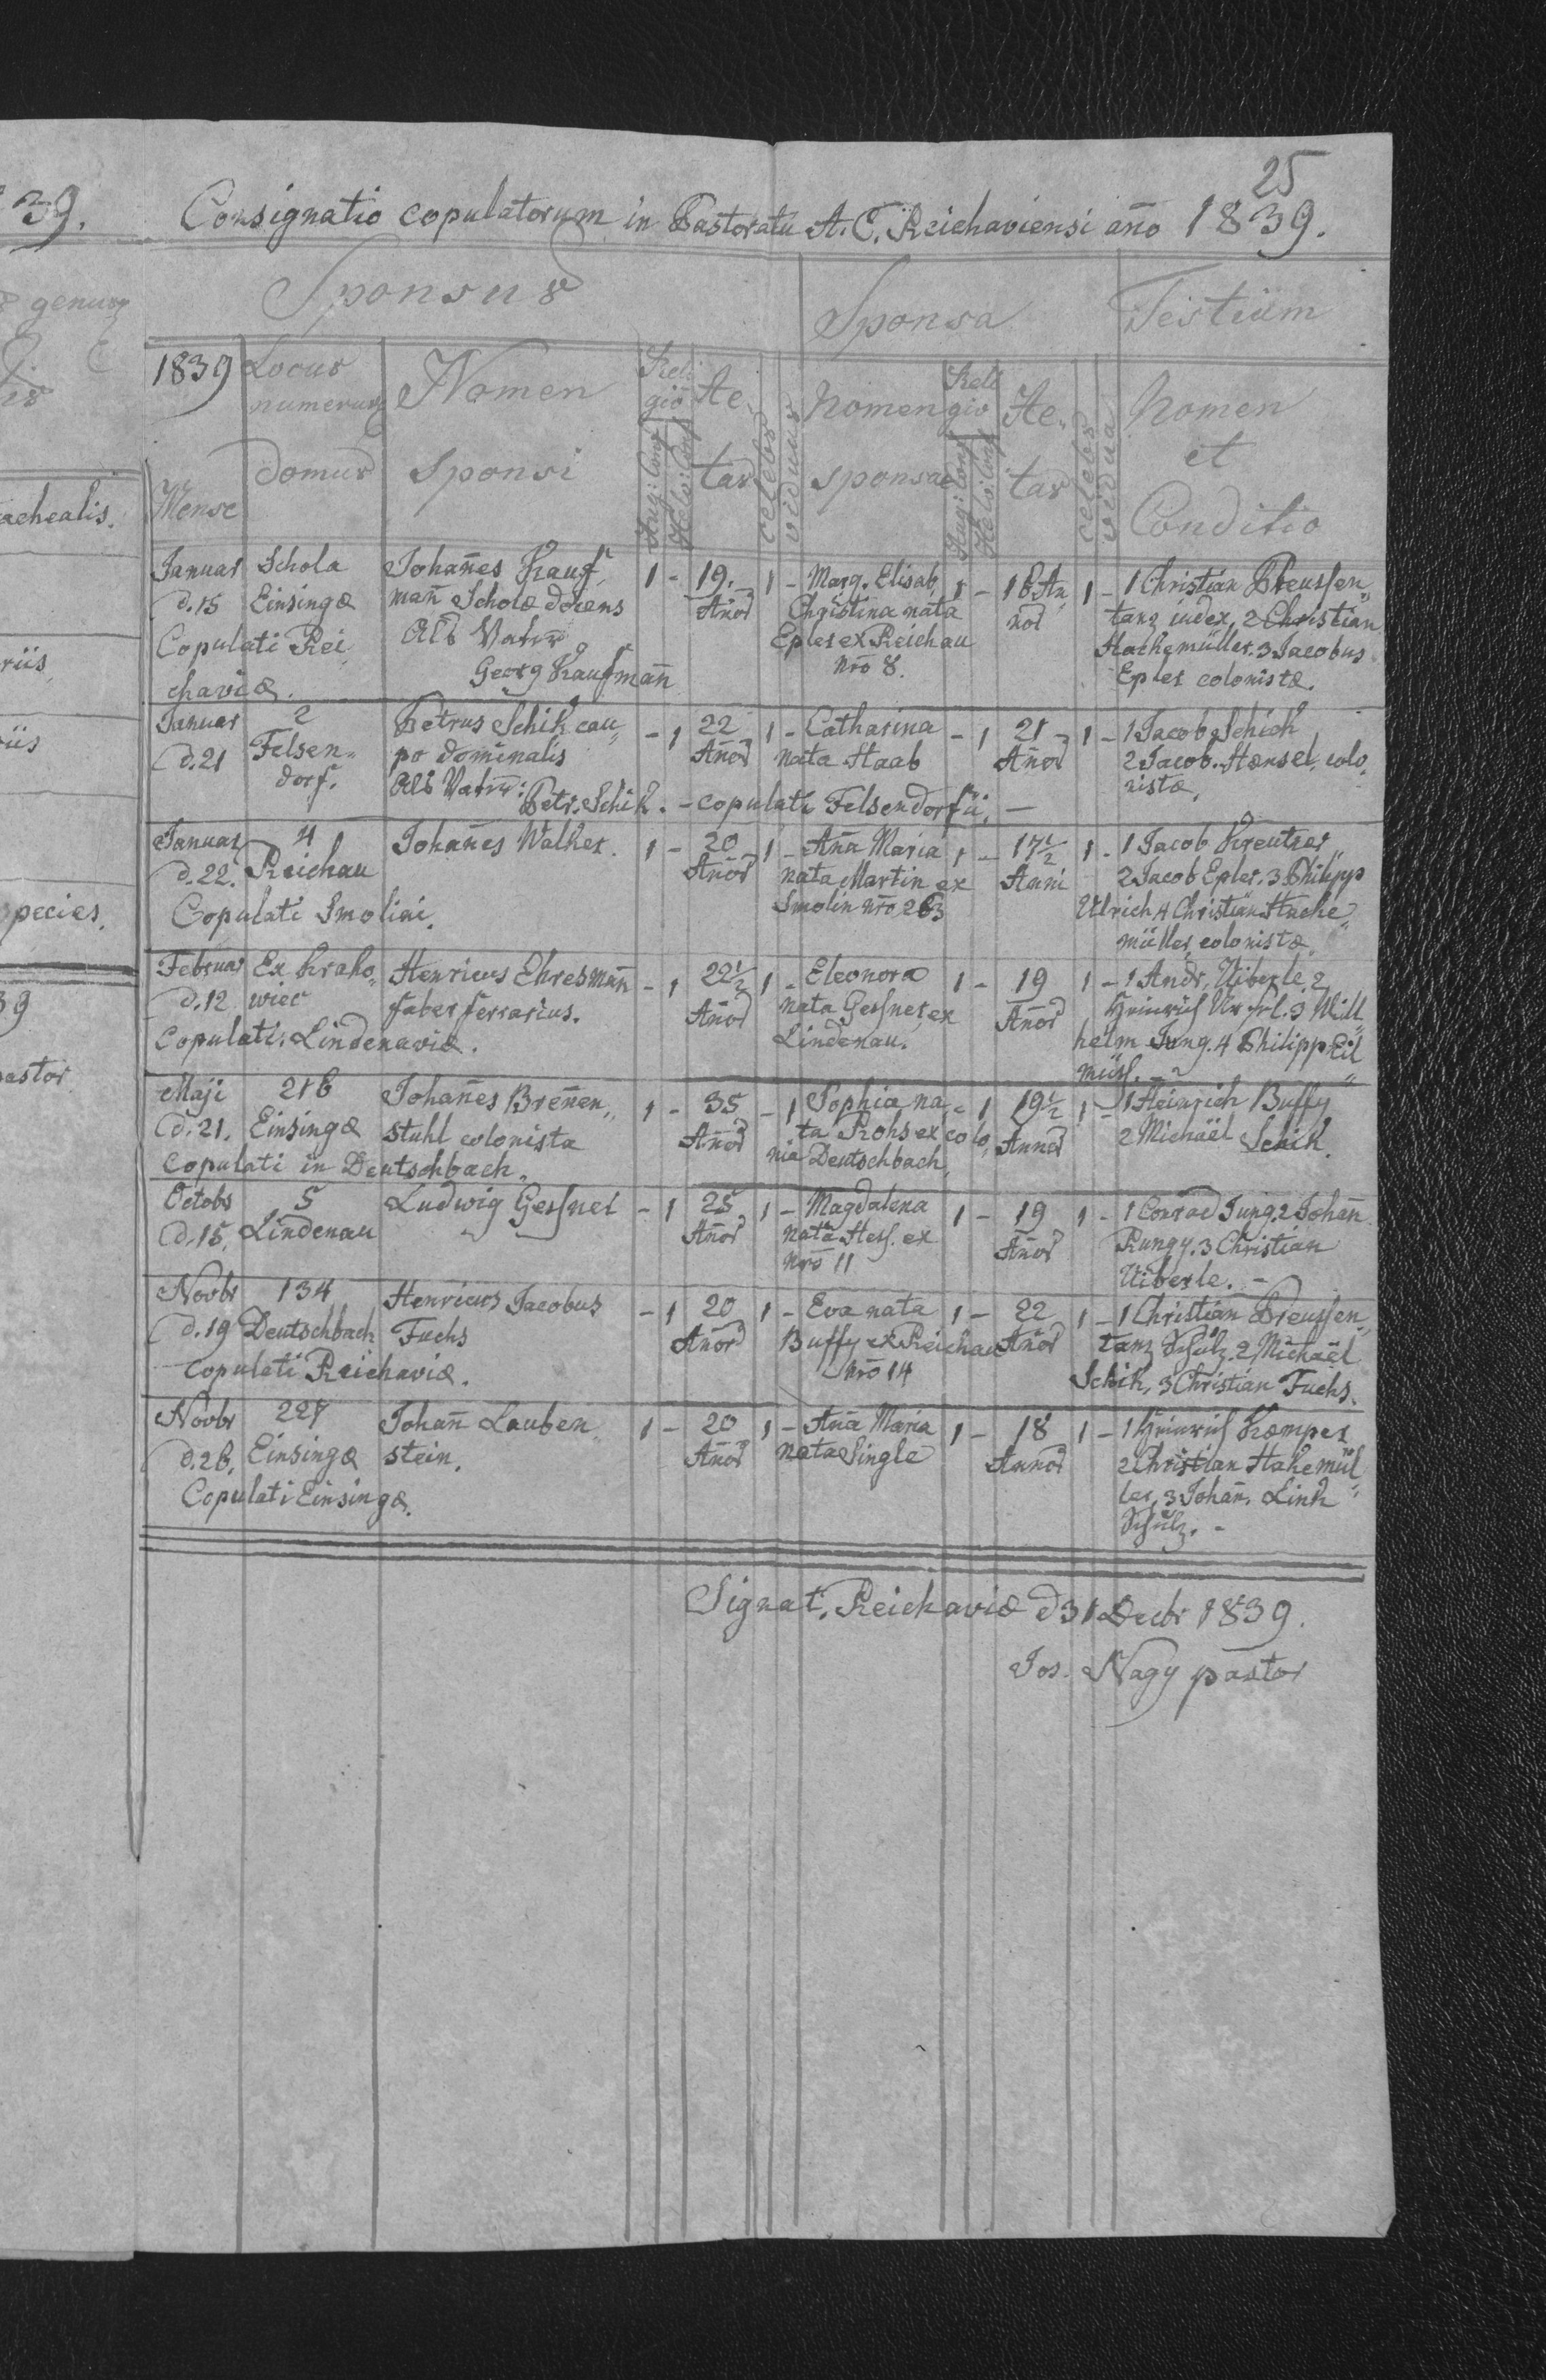 25
39.
Consignatio copulatorum in Pastoratu A. C. Reichaviensi año 1839.
genus
Sponsus
Sponsa
Testium
1839
Locus numerus domus
Nomen sponsi
Religio
Aug: Conf
Helv: Conf
Aetas
celebs
viduus
Nomen sponsae
Religio
Aug: Conf
Helv: Conf
Aetas
celebs
vidua
Nomen et Conditio
Mense
achealis.
riis
riis
species.
39
pastor
Januar Schola Johañes Kauf 1 - 19. 1 - Marg. Elisab, 1 - 18 An 1 - 1 Christian Preussen„
d. 15 Einsingæ mañ Scholæ docens Añor Christina nata nor tanz iudex, 2 Christian
Copulati Rei Als Vater Epler ex Reichau Hachemüller. 3 Jacobus
chaviæ. Georg Kaufmañ Nro 8. Epler colonistæ.
Januar 2 Petrus Schik cau„ - 1 22 1 - Catharina - 1 21 - 1 - 1 Jacob Schick
d. 21 Felsen„ po dominalis Añor nata Staab Añor 2 Jacob Hænsel, colo
dorf. Als Vater: Petr. Schik. - copulati Felsendorfii. - nistæ.
Januar 4 Johañes Walker. 1 - 20 1 - Aña Maria 1 - 17 1/2 1 - 1 Jacob Kreutzer
d. 22. Reichau Añor nata Martin ex Anni 2 Jacob Epler. 3 Philipp
Copulati Smolini. Smolin Nro 263 Ulrich 4 Christian Hache„
müller colonistæ
Februar Ex Krako„ Henricus Ehresmañ - 1 22 1/2 1 - Eleonora 1 - 19 1 - 1 Andr. Uiberle, 2
d. 12 wiec faber ferrarius. Añor nata Gessner ex Añor Heinrich 3 Will„
Copulati: Lindenaviæ. Lindenau. helm Jung. 4 Philipp
Maji 216 Johañes Breñen„ 1 - 35 - 1 Sophia na - 1 19 1/2 1 - 1 Heinrich Buffy
d. 21. Einsingæ stuhl colonista Añor ta Rohs ex colo, Annor 2 Michaël Schik.
Copulati in Deutschbach. nia Deutschbach,
Octobr 5 Ludwig Gessner - 1 25 1 - Magdalena 1 - 19 1 - 1 Conrad Jung. 2 Johañ
d. 15. Lindenau Añor nata Hess. ex Añor Rungy. 3 Christian
Nro 11 Uiberle. -
Novbr 134 Henricus Jacobus - 1 20 1 - Eva nata 1 - 22 1 - 1 Christian Preussen„
d. 19 Deutschbach Fuchs Añor Buffy ex Reichau Añor tanz Schulz. 2 Michaël
Copulati Reichaviæ. Nro 14 Schik, 3 Christian Fuchs.
Novbr 227 Johañ Lauben„ 1 - 20 1 - Aña Maria 1 - 18 1 - 1 Heinrich Kæmper
d. 26. Einsingæ stein. Añor nata Single Annor 2 Christian Hakemül„
Copulati Einsingæ. ler, 3 Johañ. Link
Schulz. -
Signat. Reichaviæ d 31 Decbr 1839.
Jos. Nagy pastor